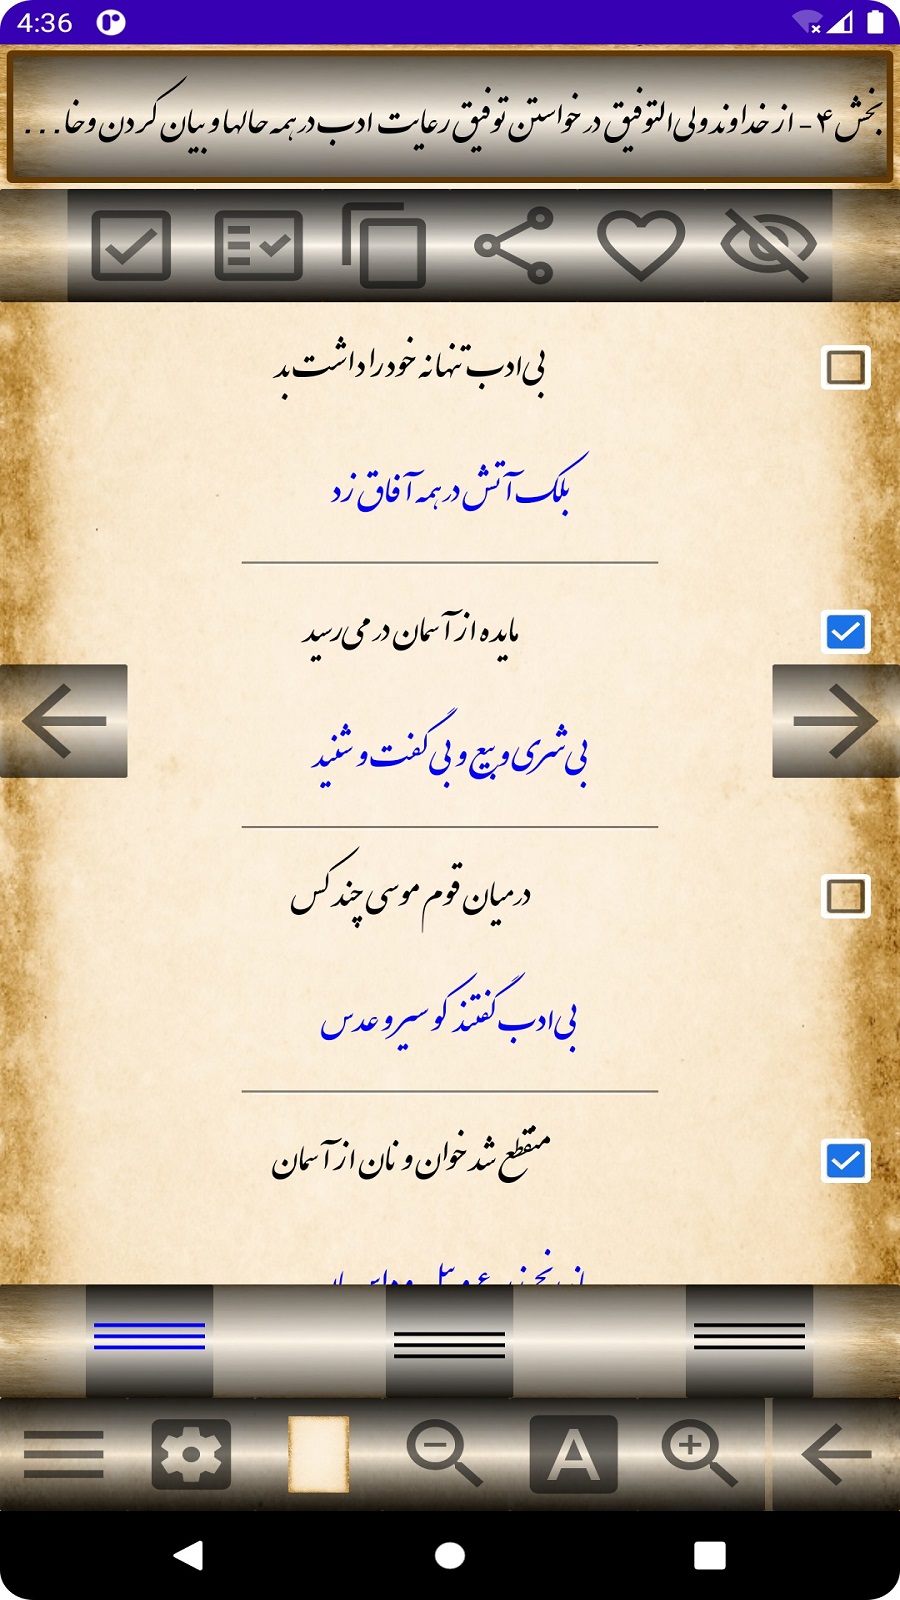 4:36
بخش ۴ - از خداوند ولی‌التوفیق در خواستن توفیق رعایت ادب در همه حالها و بیان کردن وخا...
بی‌ادب تنها نه خود را داشت بد
بلک آتش در همه آفاق زد
مایده از آسمان در می‌رسید
بی‌شری و بیع و بی گفت و شنید
درمیان قوم موسی چند کس
بی‌ادب گفتند کو سیر و عدس
منقطع شد خوان و نان از آسمان
A